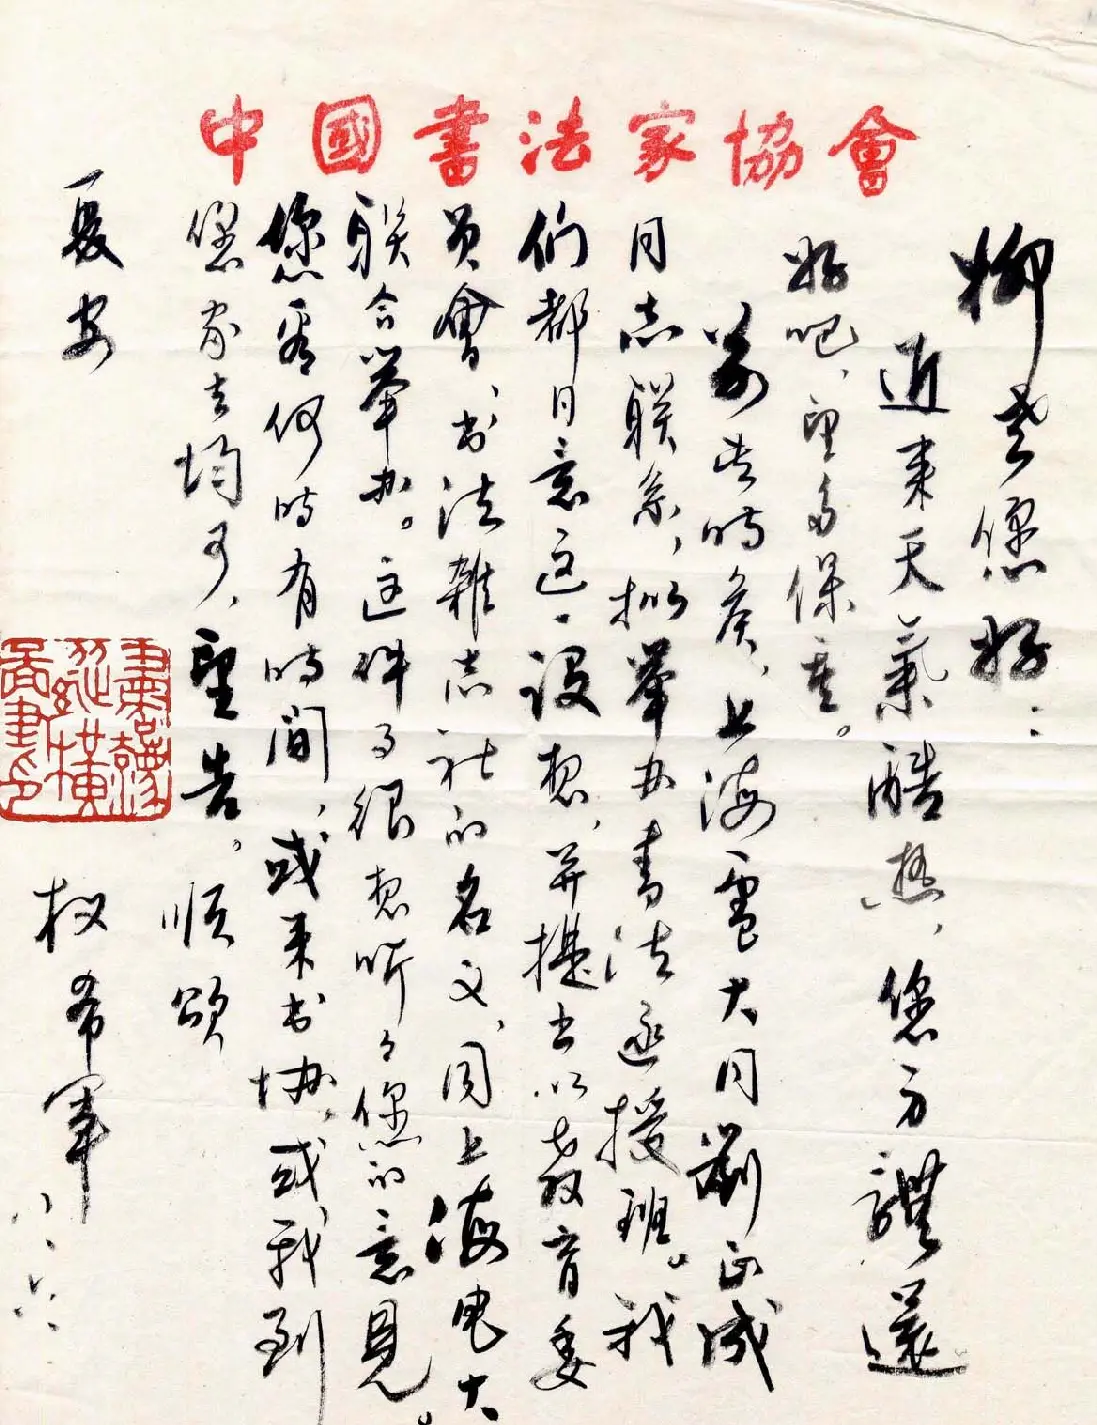 中國書法家協會
柳老您好：
近来天氣酷热，您身體還
好吧，望多保重。
前些時候，上海電大同劉正成
同志联系，拟举办書法函授班。我
们都同意这一设想，并提出以教育委
员會、书法雜志社的名义，同上海电大
联合举办。这件事很想听々您的意見。
您看何時有時间，或来书协，或我到
您家去均可，望告。順頌
夏安
权希軍
八·六